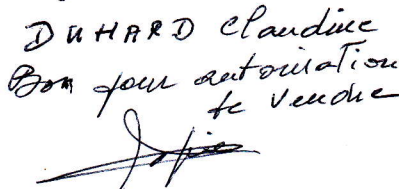 DUHARD Claudine
Bon pour autorisation
de Vendre